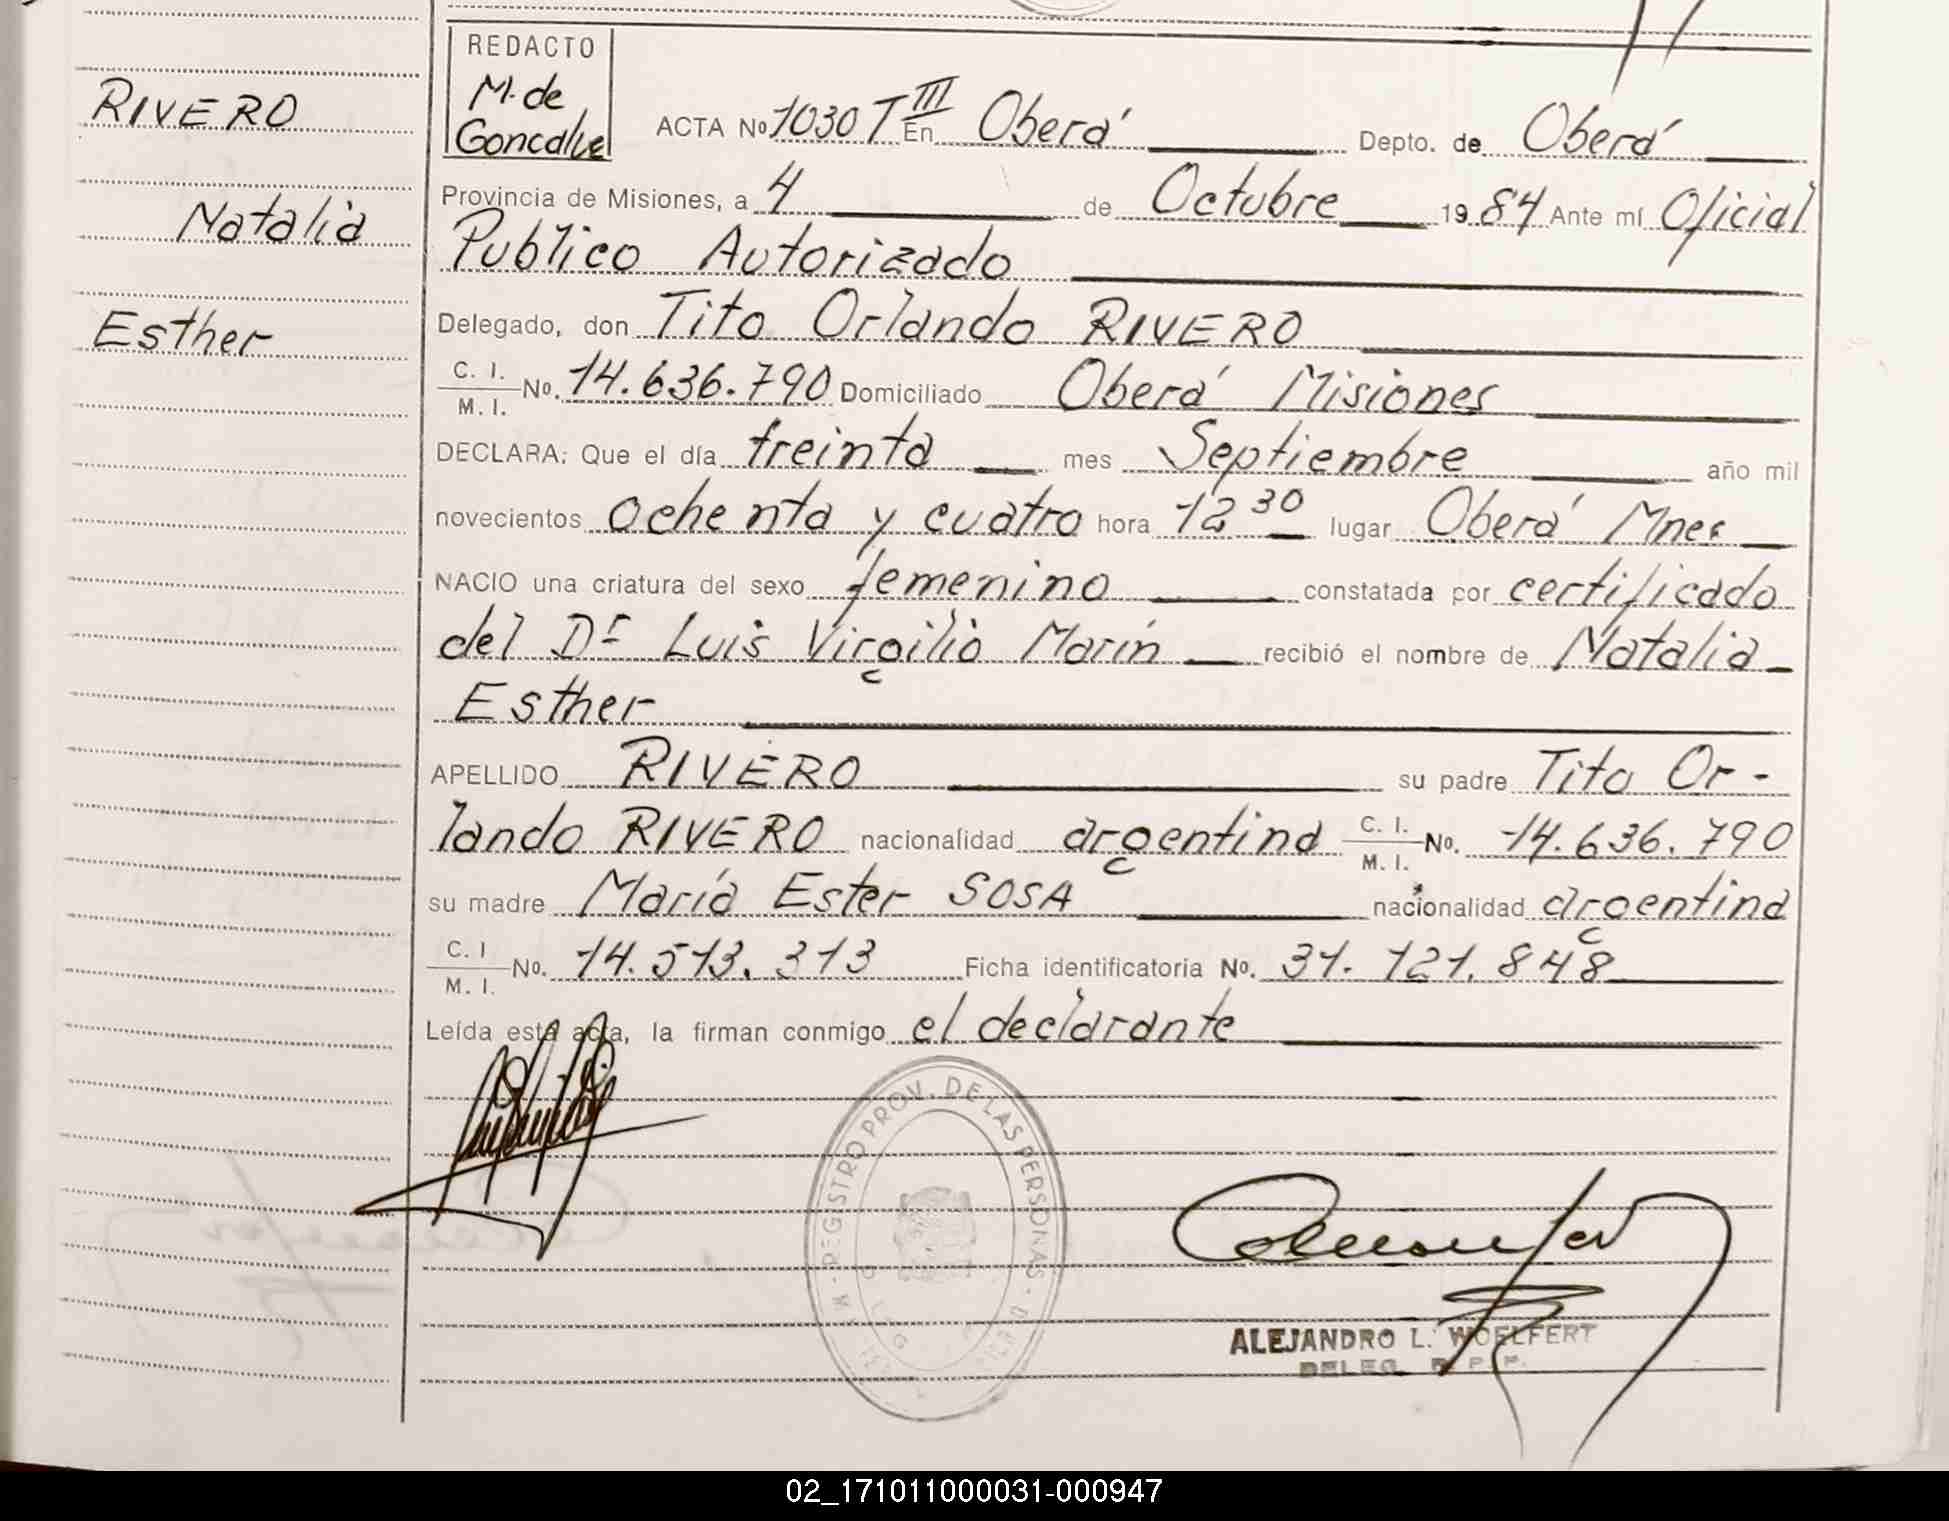 RIVERO
Natalia
Esther
REDACTO
M. de
Goncalve
ACTA Nº 1030 T III En Oberá Depto. de Oberá
Provincia de Misiones, a 4 de Octubre 19 84 Ante mí Oficial
Publico Autorizado
Delegado, don Tito Orlando RIVERO
C. I. M. I. No. 14.636.790 Domiciliado Oberá Misiones
DECLARA: Que el día treinta mes Septiembre año mil
novecientos ochenta y cuatro hora 12 30 lugar Oberá Mnes
NACIO una criatura del sexo femenino constatada por certificado
del Dr Luis Virgilio Marín recibió el nombre de Natalia
Esther
APELLIDO RIVERO su padre Tito Or-
lando RIVERO nacionalidad argentina C. I. M. I. No. 14.636.790
su madre María Ester SOSA nacionalidad argentina
C. I M. I. No. 14.513.313 Ficha identificatoria No. 31.121.848
Leída esta acta, la firman conmigo el declarante
REGISTRO PROV. DE LAS PERSONAS
ALEJANDRO L. WOELFERT
DELEG. R. P. P.
02_171011000031-000947